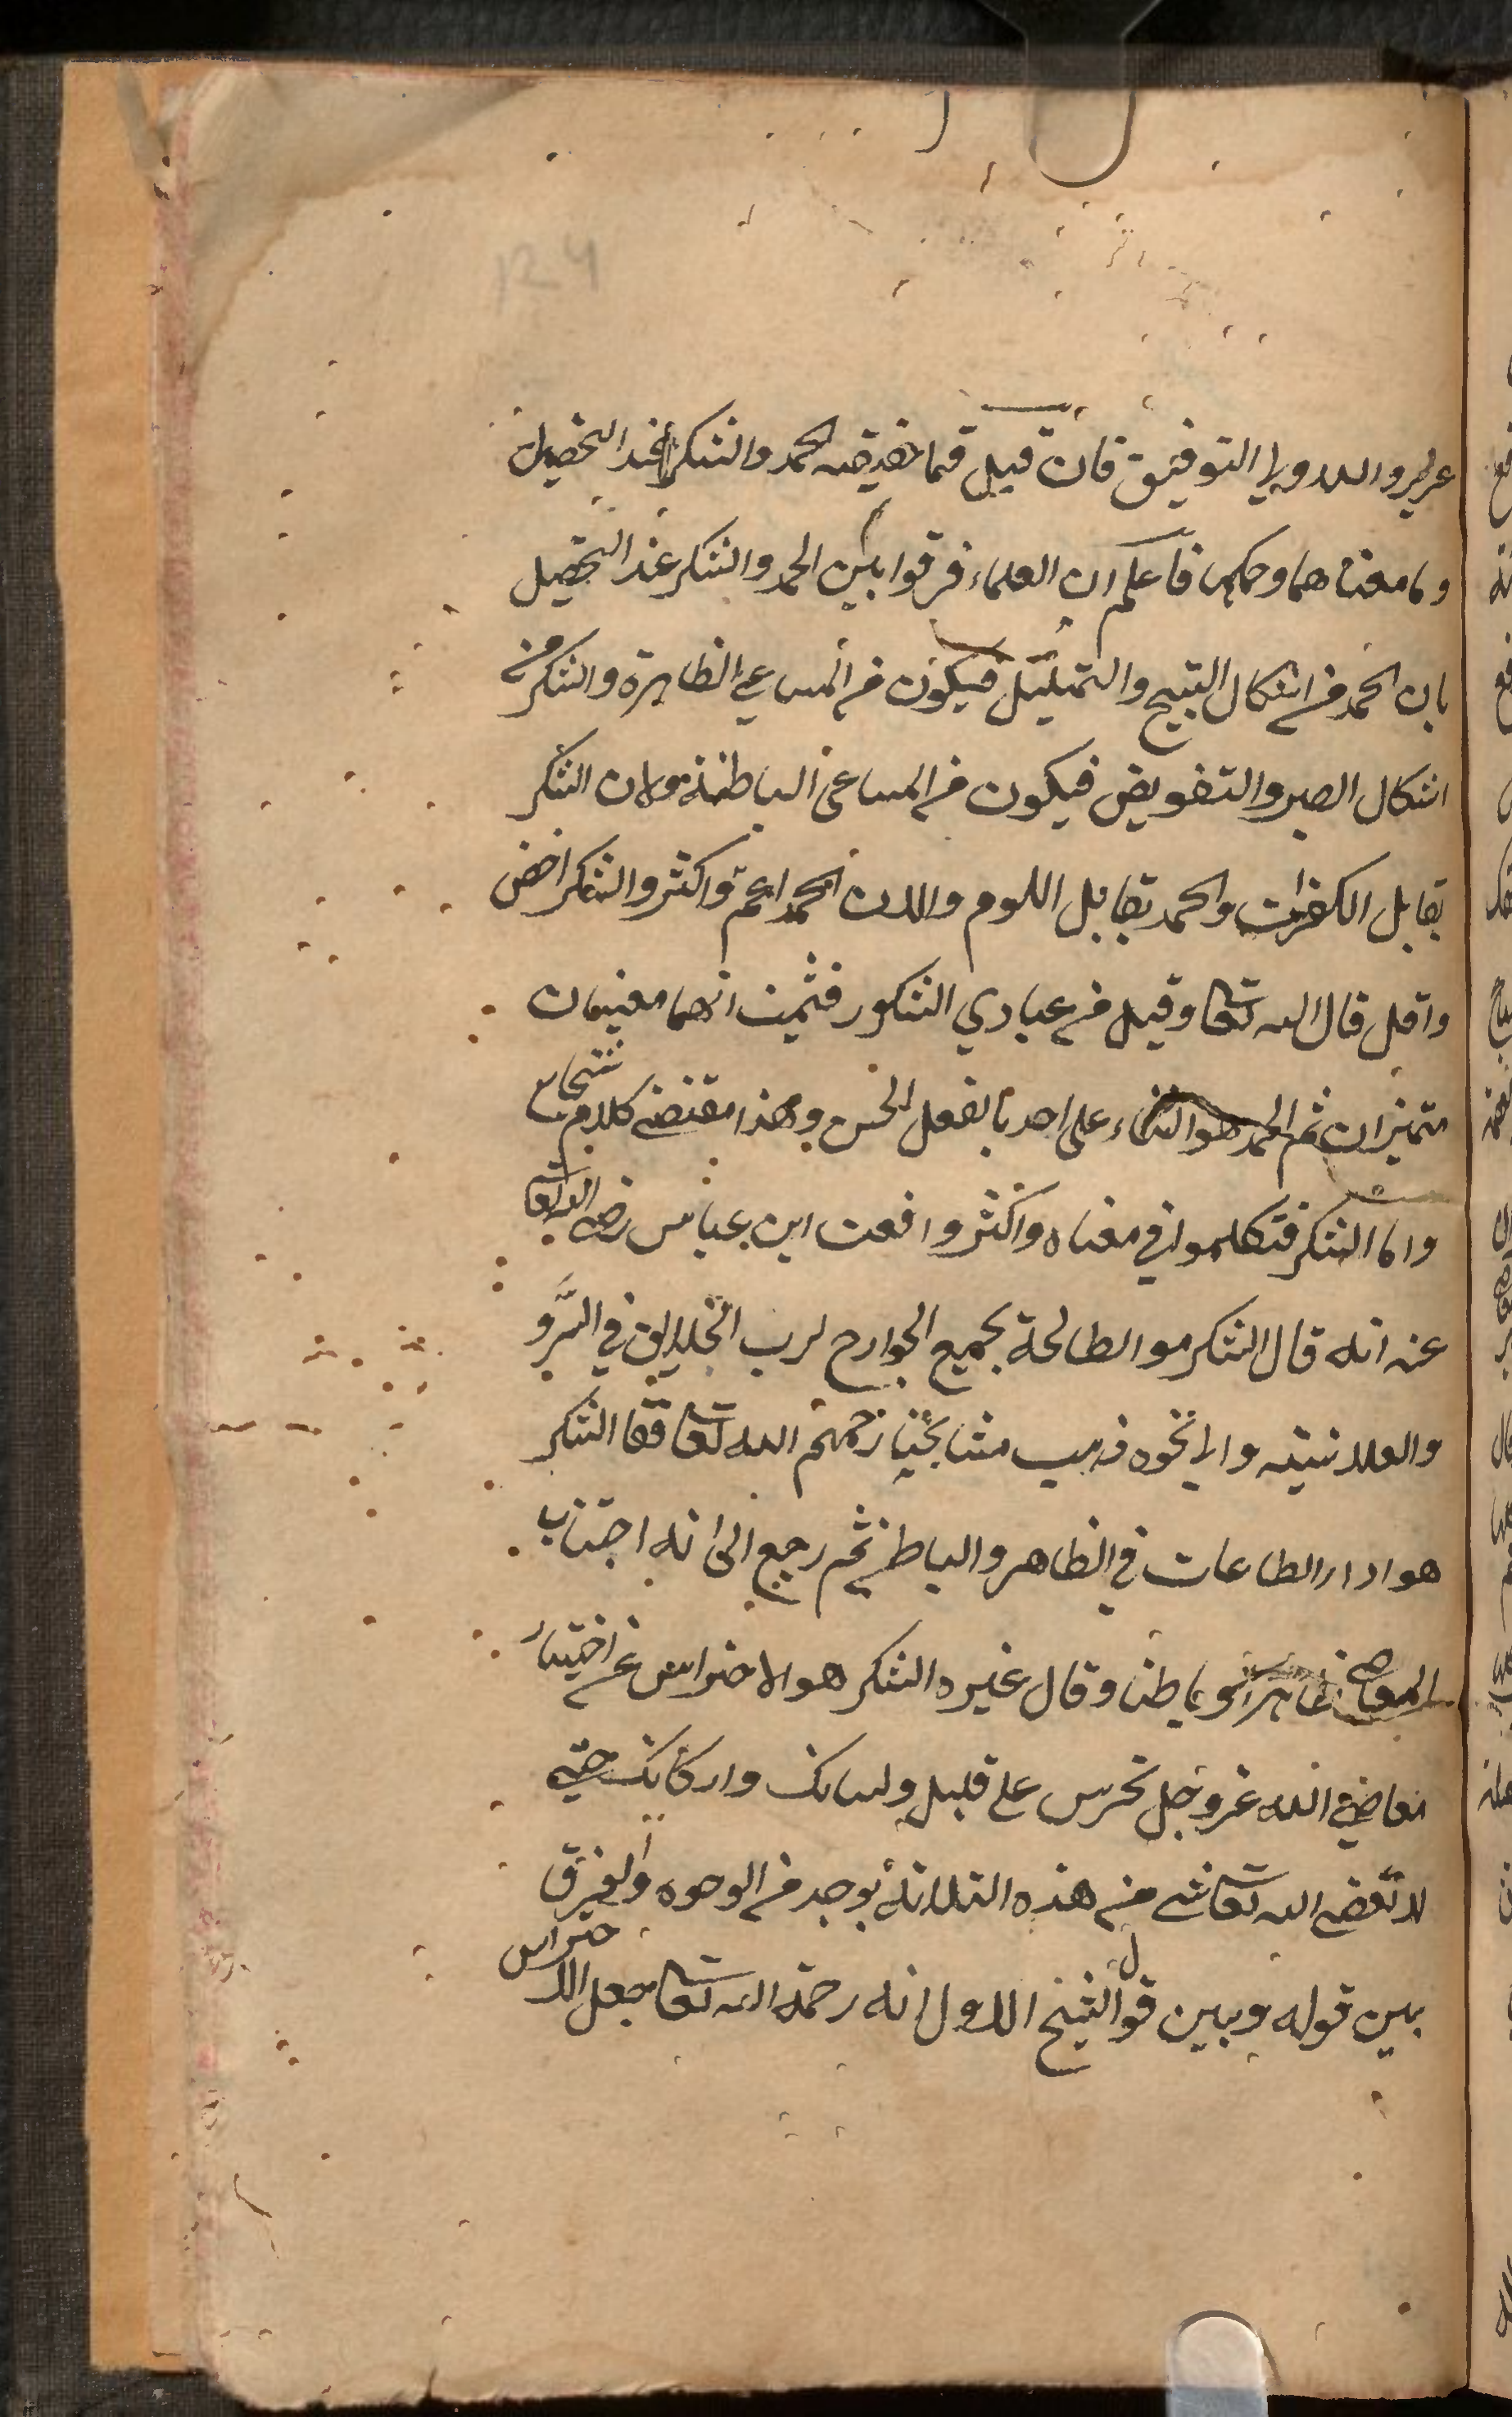 والله ولي التوفيق فان قيل فما حقيقه الحمد والشكر عند التحصيل
وما معناهما وحكمهما فاعلم ان العلماء فرقوا بين الحمد والشكر عند التحصيل
بان الحمد من اشكال التسبيح والتهليل فيكون من المساعي الظاهرة والشكر من
اشكال الصبر والتفويض فيكون من المساعي الباطنة ولان الشكر
يقابل الكفران والحمد يقابل اللوم والان الحمد اعم واكثر والشكر اخص
واقل قال الله تعا وقيل من عبادي الشكور فثبت انهما معنيان
متميزان ثم الحمد هو الثناء على احد بالفعل الحسن وهذا مقتضى كلام شيخنا
واما الشكر فتكلموا في معناه واكثروا فعن ابن عباس رضى الله تعا
عنه انه قال الشكر هو الطاعة بجميع الجوارح لرب الخلايق في السر و
والعلانيته والا نحوه ذهب مشايخنا رحمهم الله تعا فقا الشكر
هو اداء الطاعات في الظاهر والباطن ثم رجع الى انه اجتناب
المعاصي ظاهرا وباطنا وقال غيره الشكر هو الاحتراس عن اختيار
معاضي الله عز وجل تحرس على قلبك ولسانك واركانك حتى
لا تعصى الله تعا شى من هذه الثلاثة بوجه من الوجوه والفرق
بين قوله وبين قول الشيخ الاول انه رحمة الله تعا جعل الاحتراس
124